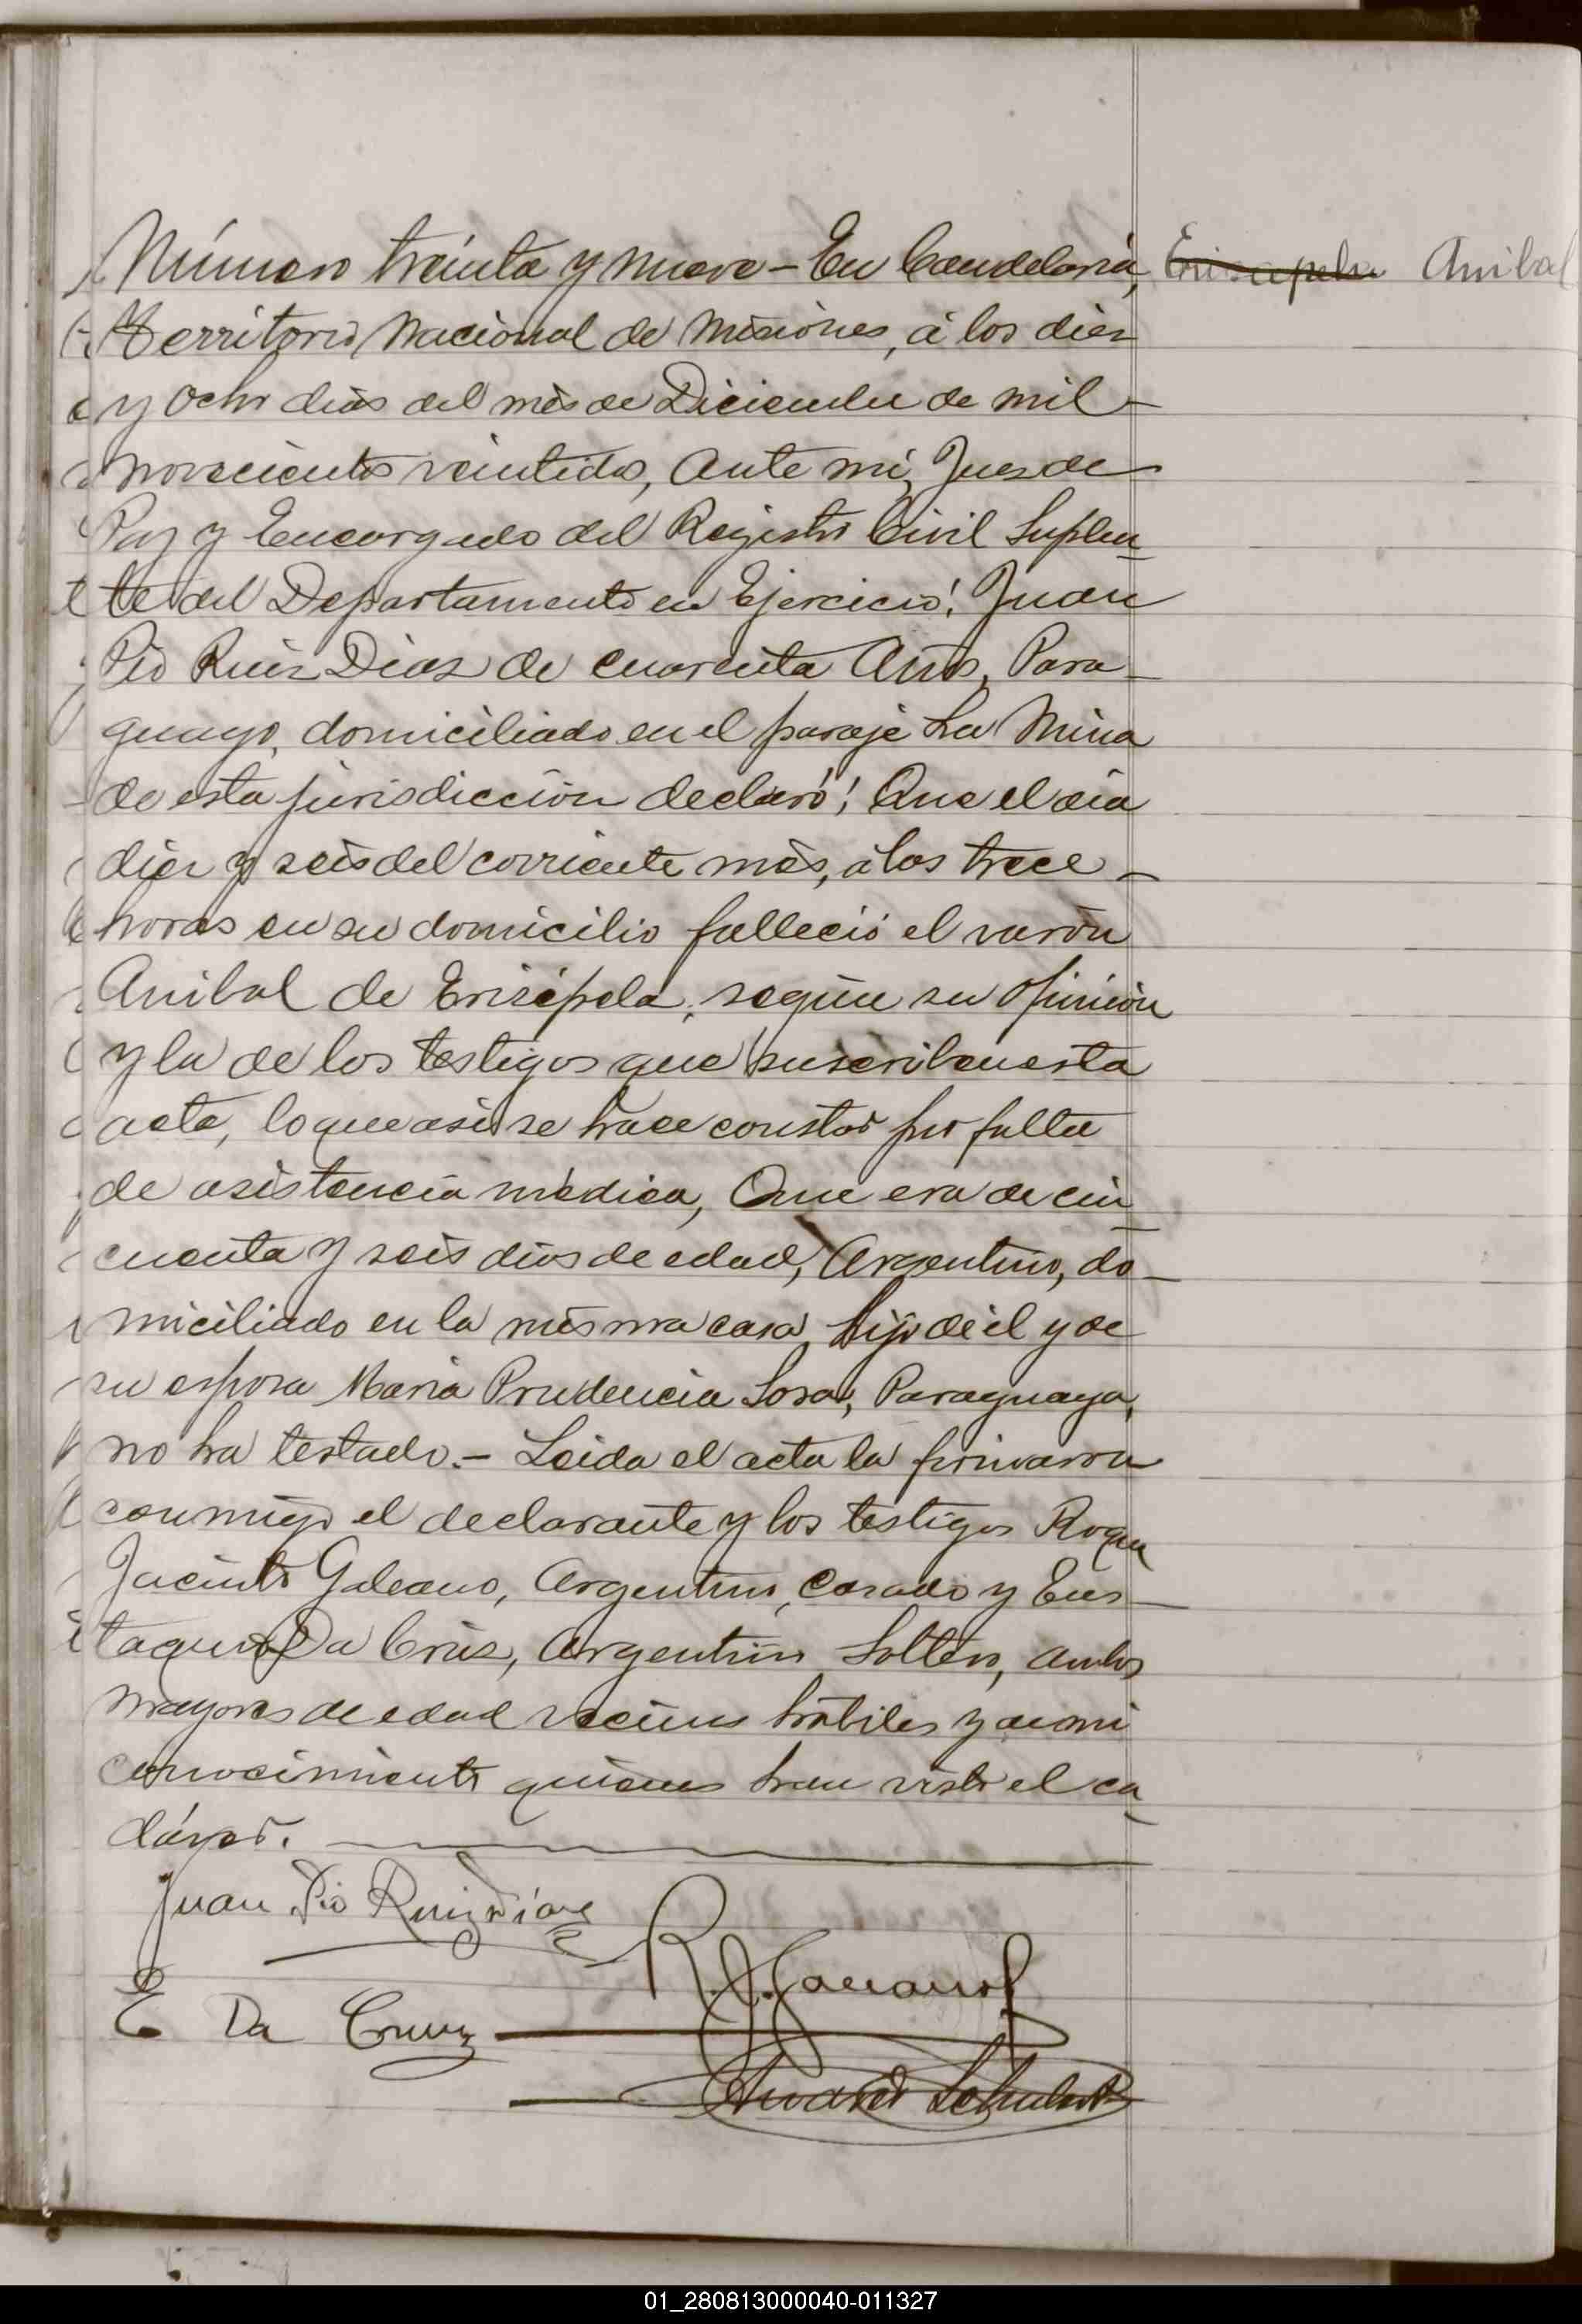 Número treinta y nueve - En Candelaria, Erisepela Anibal
Territorio Nacional de Misiones, á los diez
y ocho dias del mes de Diciembre de mil
novecientos veintidos, Ante mi, Juez de
Paz y Encargado del Registro Civil Suplen-
te del Departamento en Ejercicio: Juan
Pio Ruiz Diaz de cuarenta años, Para-
guayo, domiciliado en el paraje La Mina
de esta jurisdicción declaró: Que el dia
diez y seis del corriente mes, á las trece
horas en su domicilio falleció el varón
Anibal de Erisépela, según su opinión
y la de los testigos que suscriben esta
acta, lo que asi se hace constar por falta
de asistencia médica, Que era de cin-
cuenta y seis dias de edad, Argentino, do-
miciliado en la misma casa, hijo de él y de
su esposa Maria Prudencia Sosa, Paraguaya,
no ha testado.- Leida el acta la firmaron
conmigo el declarante y los testigos Roque
Jacinto Galeano, Argentino, Casado y Eus-
taquio Da Cruz, Argentino Soltero, ambos
mayores de edad vecinos hábiles y de mi
conocimiento quienes han visto el ca-
dáver.
Juan Pio Ruiz Diaz
R. J. Galeano
E Da Cruz
Schubert
01_280813000040-011327